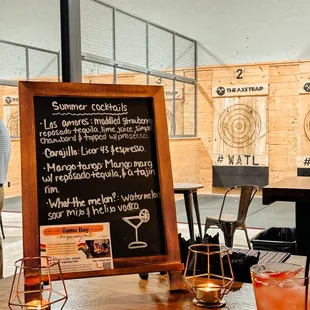 Summer cocktails
• Los amores: muddled strawberry
reposado tequila, lime juice, simple
& topped w/ prosecco
• Carajillo: Licor 43 & espresso
• Mango tango: Mango marg
w/ reposado tequila & a tajin
rim.
• What the melon?: Watermelon
sour mix & helix vodka
Game day
2
THE AXE TRAP
#WATL
#